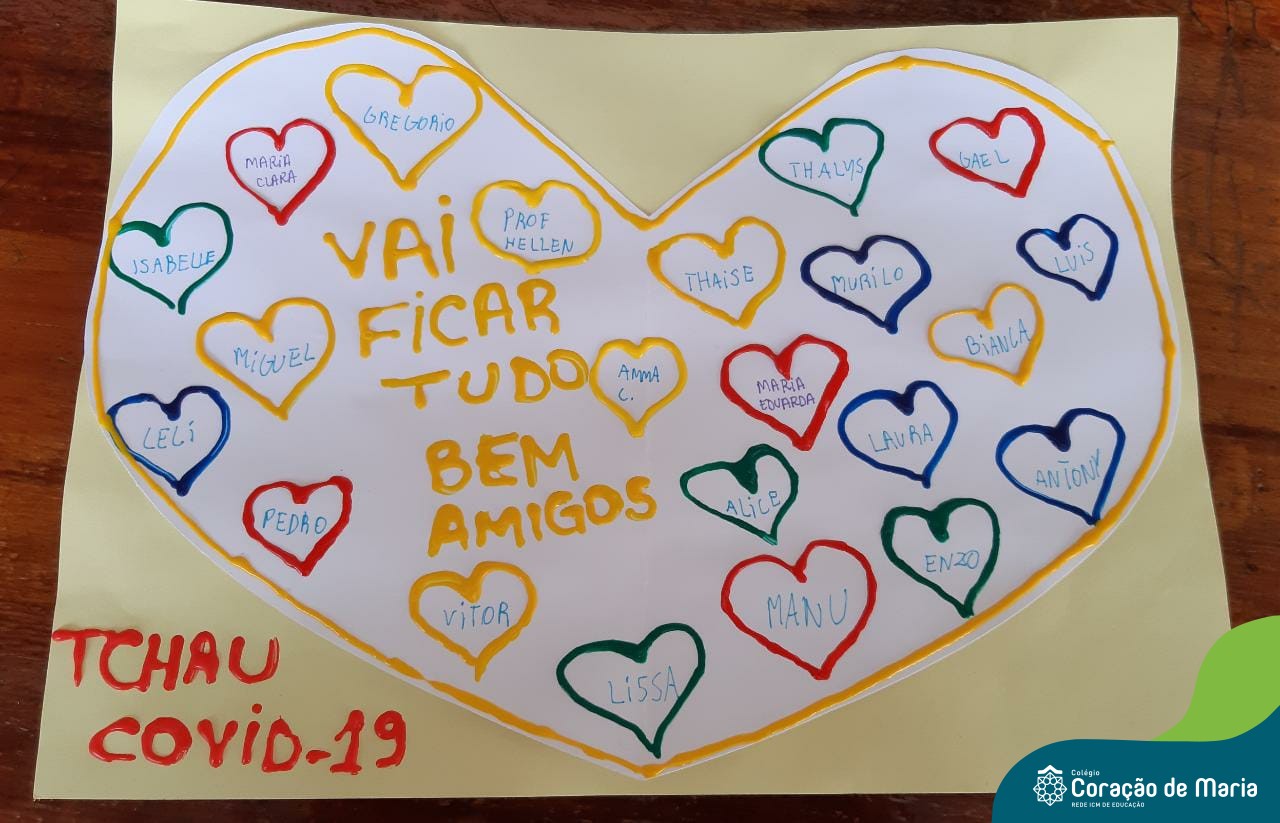 GREGORIO
MARIA
CLARA
PROF
HELLEN
ISABELLE
MIGUEL
LELI
PEDRO
VITOR
VAI
FICAR
TUDO
BEM
AMIGOS
AMMA
C.
THALYS
GAEL
THAISE
MURILO
LUIS
BIANCA
MARIA
EDUARDA
LAURA
ANTONY
ALICE
ENZO
MANU
LISSA
TCHAU
COVID-19
Colégio
Coração de Maria
REDE ICM DE EDUCAÇÃO